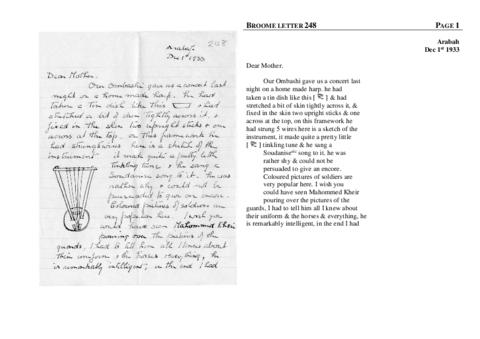 248
Arabah.
Dec 1st 1933.
Dear Mother.
Our Ombashi gave us a concert last
night on a home made harp. he had
taken a tin dish like this & had
stretched a bit of skin tightly across it, &
fixed in the skin two upright sticks & one
across at the top, on this framework he
had strung 5 wires here is a sketch of the
instrument. it made quite a pretty little
tinkling tune & he sang a
Soudanese song to it. he was
rather shy & could not be
persuaded to give an encore.
Coloured pictures of soldiers are
very popular here. I wish you
could have seen Mahommed Kheir
pouring over the pictures of the
guards, I had to tell him all I knew about
their uniform & the horses & everything, he
is remarkably intelligent, in the end I had
BROOME LETTER 248 PAGE 1
Arabah
Dec 1st 1933
Dear Mother,
Our Ombashi gave us a concert last
night on a home made harp. he had
taken a tin dish like this [ ] & had
stretched a bit of skin tightly across it, &
fixed in the skin two upright sticks & one
across at the top, on this framework he
had strung 5 wires here is a sketch of the
instrument, it made quite a pretty little
[ ] tinkling tune & he sang a
Soudanese song to it. he was
rather shy & could not be
persuaded to give an encore.
Coloured pictures of soldiers are
very popular here. I wish you
could have seen Mahommed Kheir
pouring over the pictures of the
guards, I had to tell him all I knew about
their uniform & the horses & everything, he
is remarkably intelligent, in the end I had